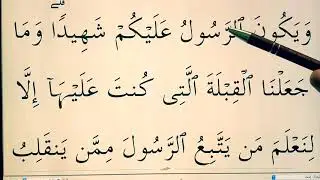 وَيَكُونَ ٱلرَّسُولُ عَلَيْكُمْ شَهِيدًاۗ وَمَا
جَعَلْنَا ٱلْقِبْلَةَ ٱلَّتِى كُنتَ عَلَيْهَآ إِلَّا
لِنَعْلَمَ مَن يَتَّبِعُ ٱلرَّسُولَ مِمَّن يَنقَلِبُ